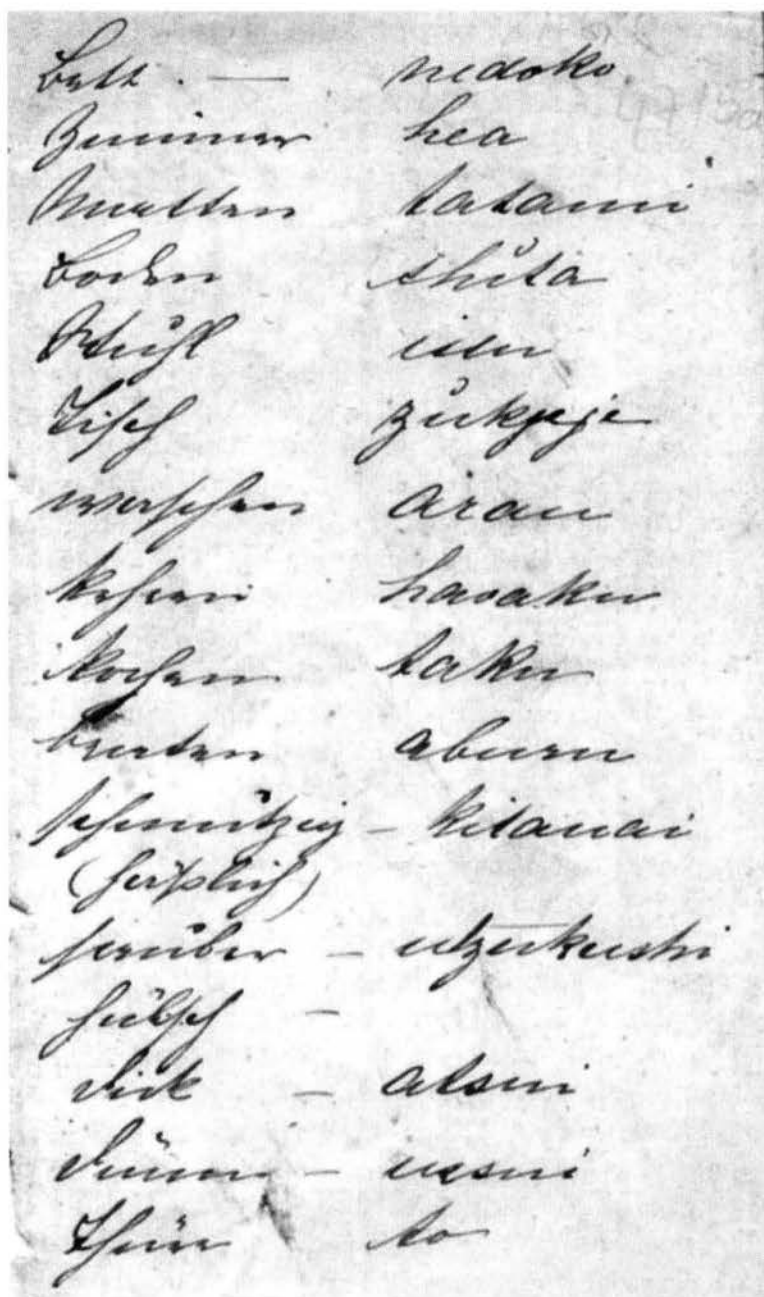 Bett. — nedoko
Zimmer hea
Matten tatami
Boden shita
Stuhl isu
Tisch zukuje
waschen arau
kehren havaku
kochen taku
braten aburu
schmutzig – kitanai
(häßlich)
sauber – utzukushi
hübsch –
dick – atsui
dünn – ussui
Thüre to